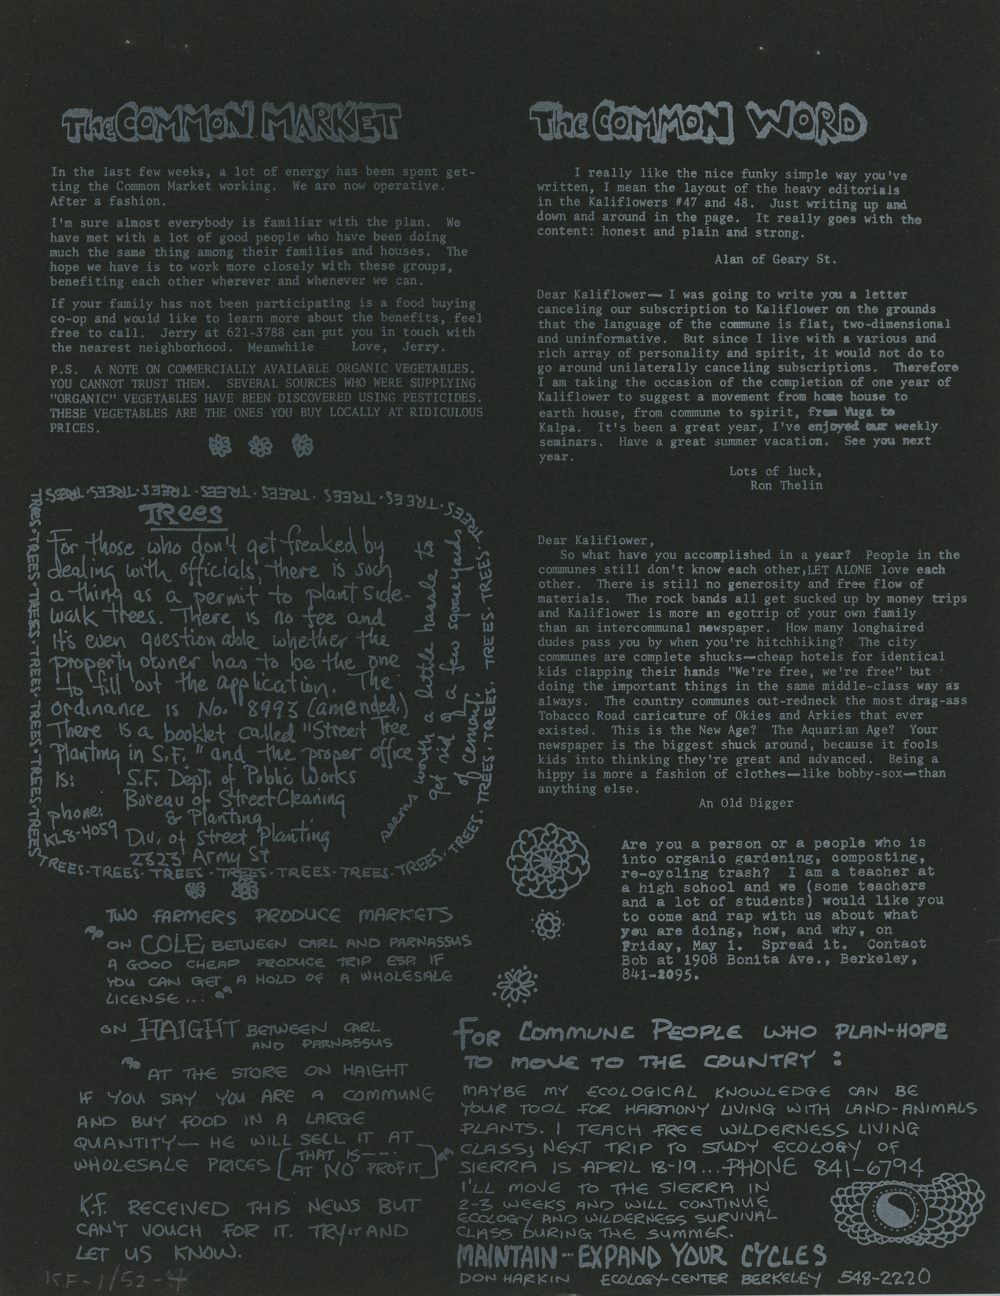 The COMMON MARKET
In the last few weeks, a lot of energy has been spent get-
ting the Common Market working.  We are now operative.
After a fashion.
I'm sure almost everybody is familiar with the plan.  We
have met with a lot of good people who have been doing
much the same thing among their families and houses.  The
hope we have is to work more closely with these groups,
benefiting each other wherever and whenever we can.
If your family has not been participating is a food buying
co-op and would like to learn more about the benefits, feel
free to call.  Jerry at 621-3788 can put you in touch with
the nearest neighborhood.  Meanwhile    Love,  Jerry.
P.S.  A NOTE ON COMMERCIALLY AVAILABLE ORGANIC VEGETABLES.
YOU CANNOT TRUST THEM.  SEVERAL SOURCES WHO WERE SUPPLYING
"ORGANIC" VEGETABLES HAVE BEEN DISCOVERED USING PESTICIDES.
THESE VEGETABLES ARE THE ONES YOU BUY LOCALLY AT RIDICULOUS
PRICES.
TREES · TREES · TREES · TREES · TREES · TREES · TREES
TREES
For those who don't get freaked by
dealing with officials, there is such
a thing as a permit to plant side-
walk trees. There is no fee and
it's even questionable whether the
property owner has to be the one
to fill out the application. The
ordinance is No. 8993 (amended.)
There is a booklet called "Street Tree
Planting in S.F." and the proper office
is:
S.F. Dept. of Public Works
Bureau of Street Cleaning
& Planting
Div. of Street Planting
2323 Army St
phone:
KL8-4059
seems worth a little hassle to
get rid of a few square yards
of cement.
TREES · TREES · TREES · TREES · TREES · TREES · TREES
TWO FARMERS PRODUCE MARKETS
" ON COLE BETWEEN CARL AND PARNASSUS
A GOOD CHEAP PRODUCE TRIP ESP. IF
YOU CAN GET A HOLD OF A WHOLESALE
LICENSE... "
ON HAIGHT BETWEEN CARL
AND PARNASSUS
" AT THE STORE ON HAIGHT
IF YOU SAY YOU ARE A COMMUNE
AND BUY FOOD IN A LARGE
QUANTITY— HE WILL SELL IT AT
WHOLESALE PRICES [THAT IS---
AT NO PROFIT] "
K.F. RECEIVED THIS NEWS BUT
CAN'T VOUCH FOR IT. TRY IT AND
LET US KNOW.
KF-1/52-4
The COMMON WORD
I really like the nice funky simple way you've
written, I mean the layout of the heavy editorials
in the Kaliflowers #47 and 48.  Just writing up and
down and around in the page.  It really goes with the
content: honest and plain and strong.
Alan of Geary St.
Dear Kaliflower— I was going to write you a letter
canceling our subscription to Kaliflower on the grounds
that the language of the commune is flat, two-dimensional
and uninformative.  But since I live with a various and
rich array of personality and spirit, it would not do to
go around unilaterally canceling subscriptions.  Therefore
I am taking the occasion of the completion of one year of
Kaliflower to suggest a movement from home house to
earth house, from commune to spirit, from Yuga to
Kalpa.  It's been a great year, I've enjoyed our weekly
seminars.  Have a great summer vacation.  See you next
year.
Lots of luck,
Ron Thelin
Dear Kaliflower,
So what have you accomplished in a year?  People in the
communes still don't know each other,LET ALONE love each
other.  There is still no generosity and free flow of
materials.  The rock bands all get sucked up by money trips
and Kaliflower is more an egotrip of your own family
than an intercommunal newspaper.  How many longhaired
dudes pass you by when you're hitchhiking?  The city
communes are complete shucks—cheap hotels for identical
kids clapping their hands "We're free, we're free" but
doing the important things in the same middle-class way as
always.  The country communes out-redneck the most drag-ass
Tobacco Road caricature of Okies and Arkies that ever
existed.  This is the New Age?  The Aquarian Age?  Your
newspaper is the biggest shuck around, because it fools
kids into thinking they're great and advanced.  Being a
hippy is more a fashion of clothes—like bobby-sox—than
anything else.
An Old Digger
Are you a person or a people who is
into organic gardening, composting,
re-cycling trash?  I am a teacher at
a high school and we (some teachers
and a lot of students) would like you
to come and rap with us about what
you are doing, how, and why, on
Friday, May 1.  Spread it.  Contact
Bob at 1908 Bonita Ave., Berkeley,
841-2095.
FOR COMMUNE PEOPLE WHO PLAN-HOPE
TO MOVE TO THE COUNTRY :
MAYBE MY ECOLOGICAL KNOWLEDGE CAN BE
YOUR TOOL FOR HARMONY LIVING WITH LAND-ANIMALS
PLANTS. I TEACH FREE WILDERNESS LIVING
CLASS, NEXT TRIP TO STUDY ECOLOGY OF
SIERRA IS APRIL 18-19...PHONE 841-6794
I'LL MOVE TO THE SIERRA IN
2-3 WEEKS AND WILL CONTINUE
ECOLOGY AND WILDERNESS SURVIVAL
CLASS DURING THE SUMMER.
MAINTAIN--EXPAND YOUR CYCLES
DON HARKIN   ECOLOGY-CENTER BERKELEY  548-2220